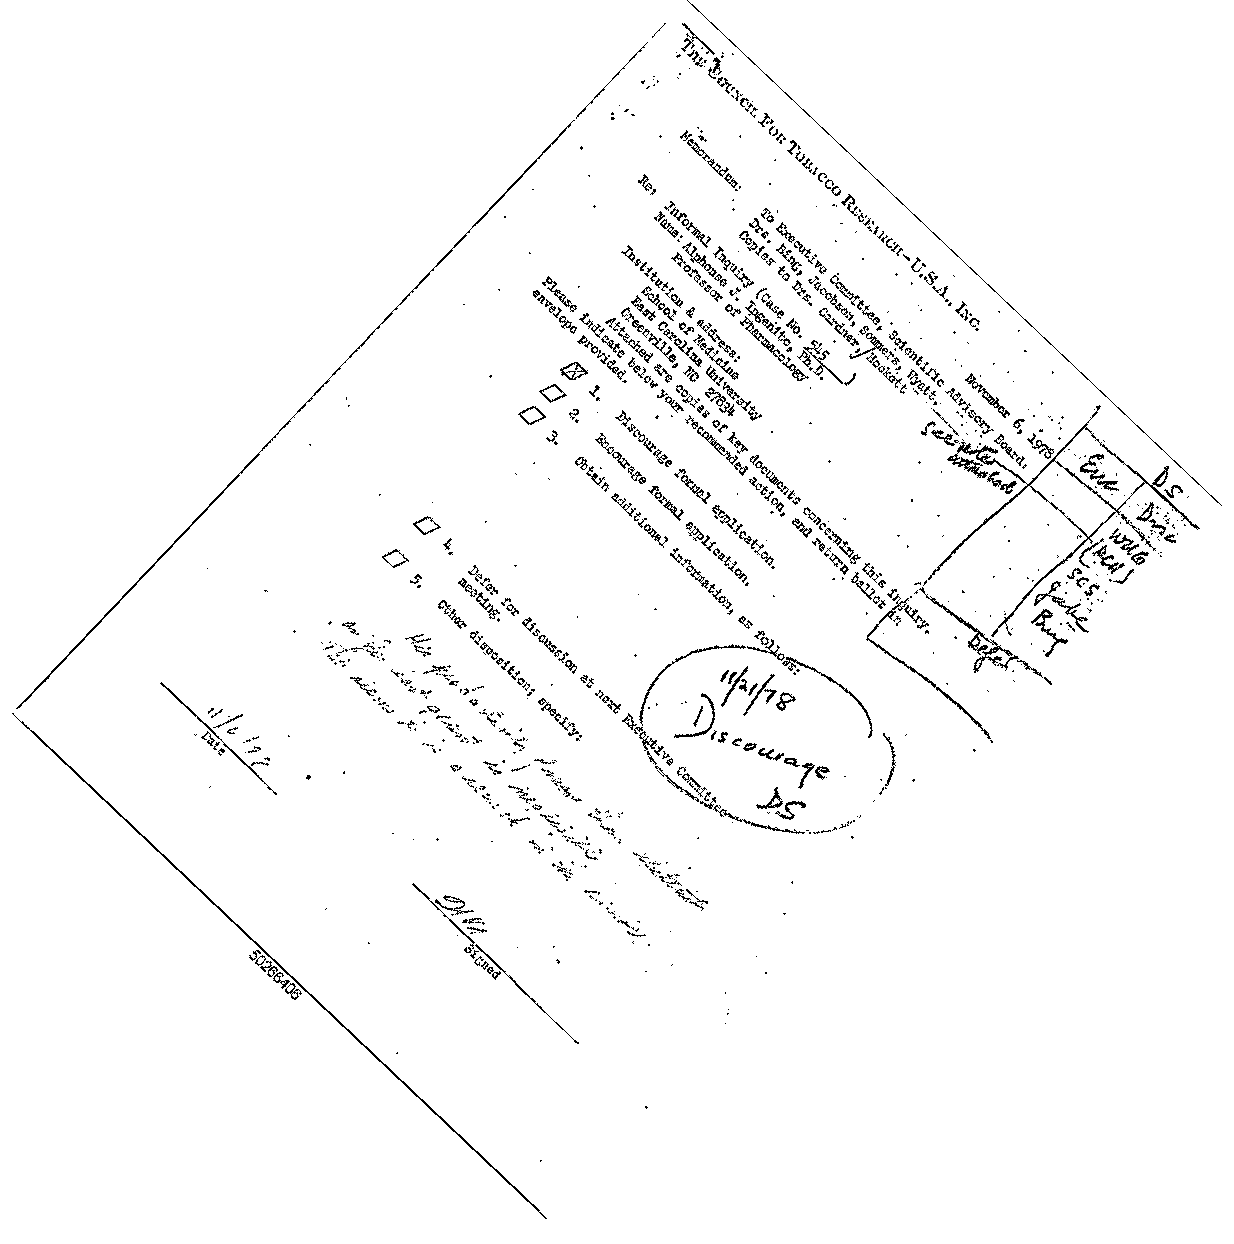 THE COUNCIL FOR TOBACCO RESEARCH—U.S.A., INC.
November 6, 1978
Memorandum:
To Executive Committee, Scientific Advisory Board.
Drs. Bing, Jacobson, Sommers, Wyatt.
Copies to Drs. Gardner, Hockett
see notes
attached
Re: Informal Inquiry (Case No. 545)
Name: Alphonse J. Ingenito, Ph.D.
Professor of Pharmacology
Institution & address:
School of Medicine
East Carolina University
Greenville, NC 27834
Attached are copies of key documents concerning this inquiry.
Please indicate below your recommended action, and return ballot in
envelope provided.
1. Discourage formal application.
2. Encourage formal application.
3. Obtain additional information, as follows:
4. Defer for discussion at next Executive Committee
meeting.
5. Other disposition; specify:
DS
Enc
Disc
WUG
SCS
Jake
Bing
Defer
11/21/78
Discourage
DS
Date
Signed
50266406